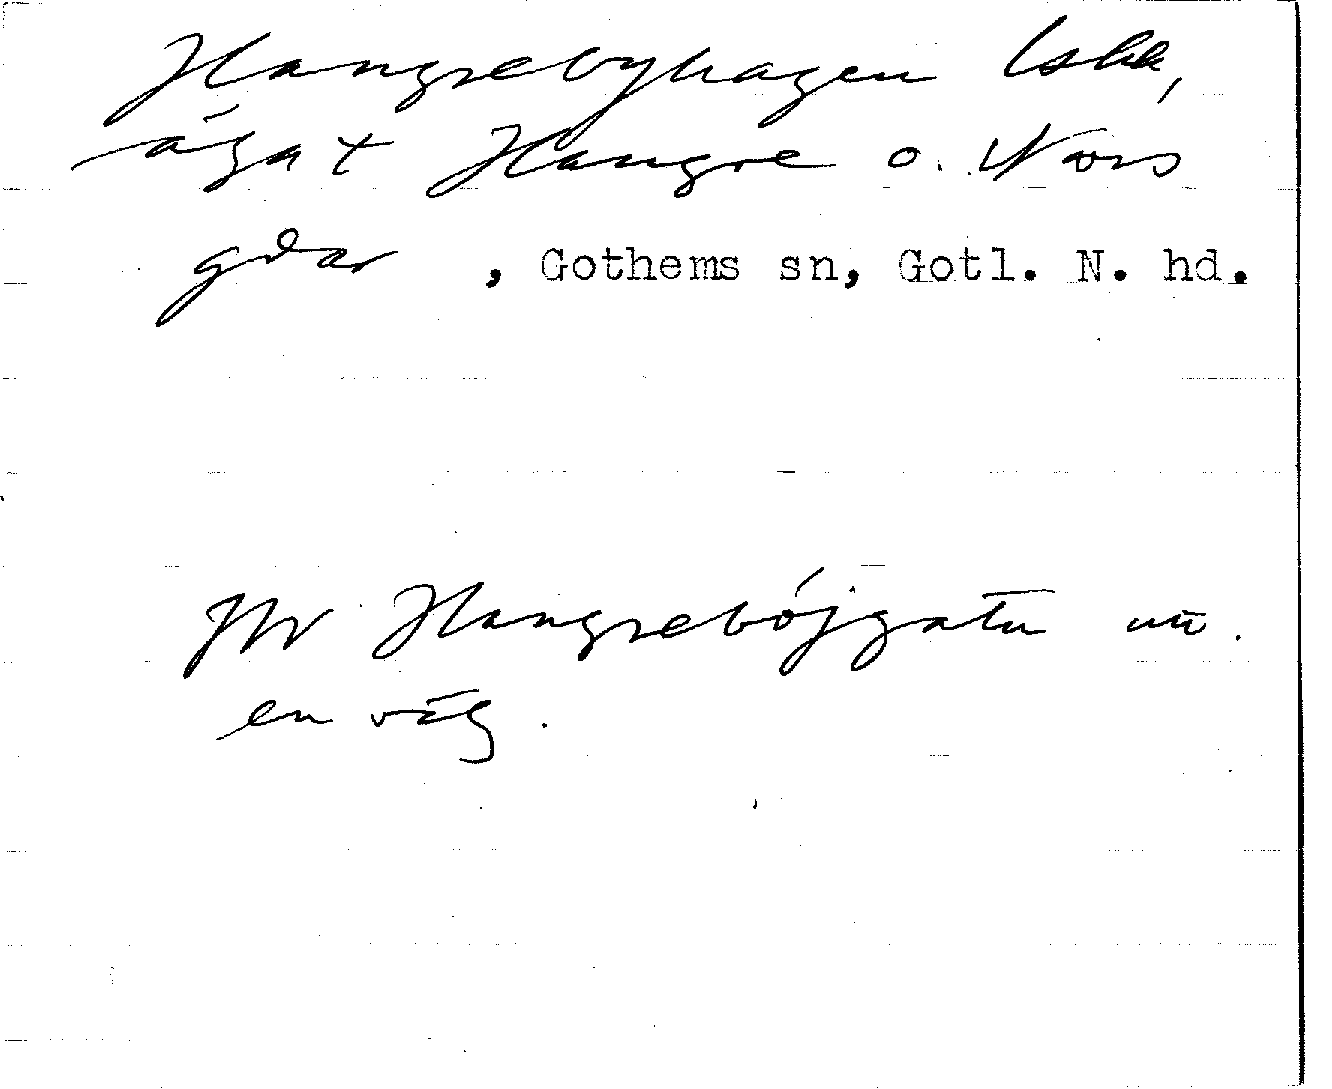 Hangrebyhagen lskk,
ägat Hangre o. Nors
gdar, Gothems sn, Gotl. N. hd.
Jfr Hangreböjgatu nu.
en väg.